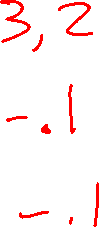 3,2
-.1
-.1